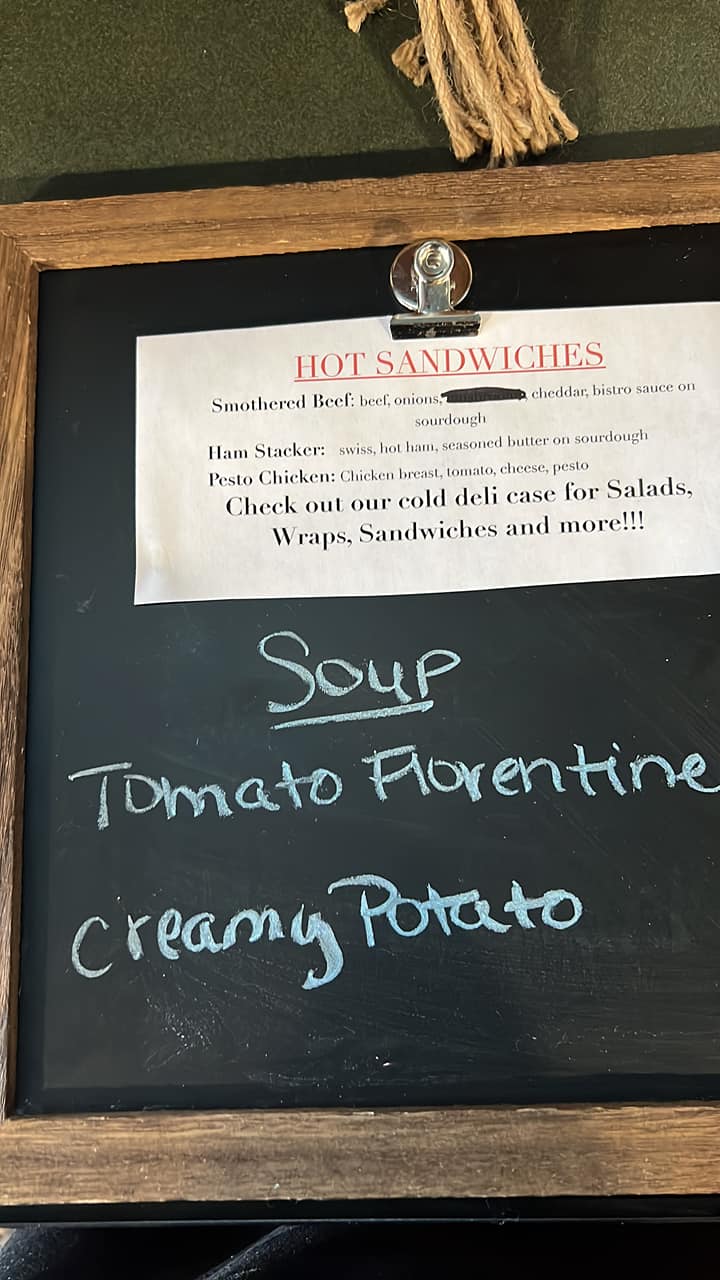 HOT SANDWICHES
Smothered Beef: beef, onions, cheddar, bistro sauce on
sourdough
Ham Stacker: swiss, hot ham, seasoned butter on sourdough
Pesto Chicken: Chicken breast, tomato, cheese, pesto
Check out our cold deli case for Salads,
Wraps, Sandwiches and more!!!
Soup
Tomato Florentine
Creamy Potato